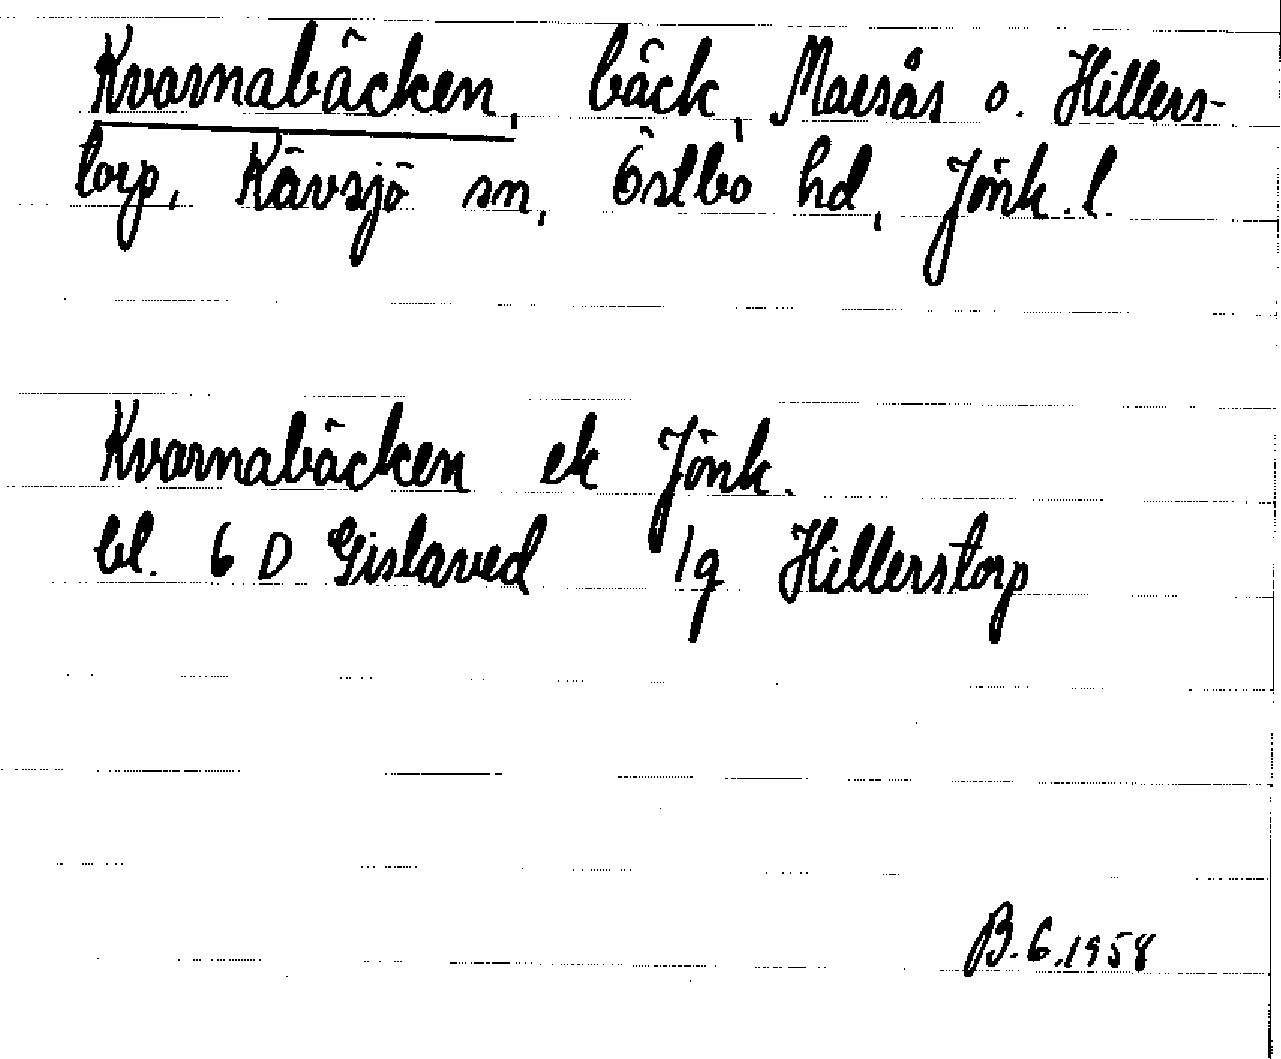 Kvarnabäcken, bäck, Marsås o. Hillers-
torp, Kävsjö sn, Östbo hd, Jönk. l.
Kvarnabäcken ek Jönk.
bl. 6 D Gislaved 1g Hillerstorp
B.G.1958